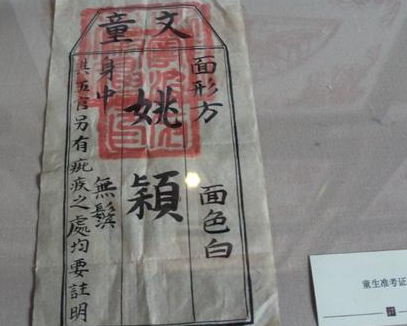 文童
面形方 面色白
姚穎
身中 無鬚
其五官另有疵疾之處均要註明
童生准考证